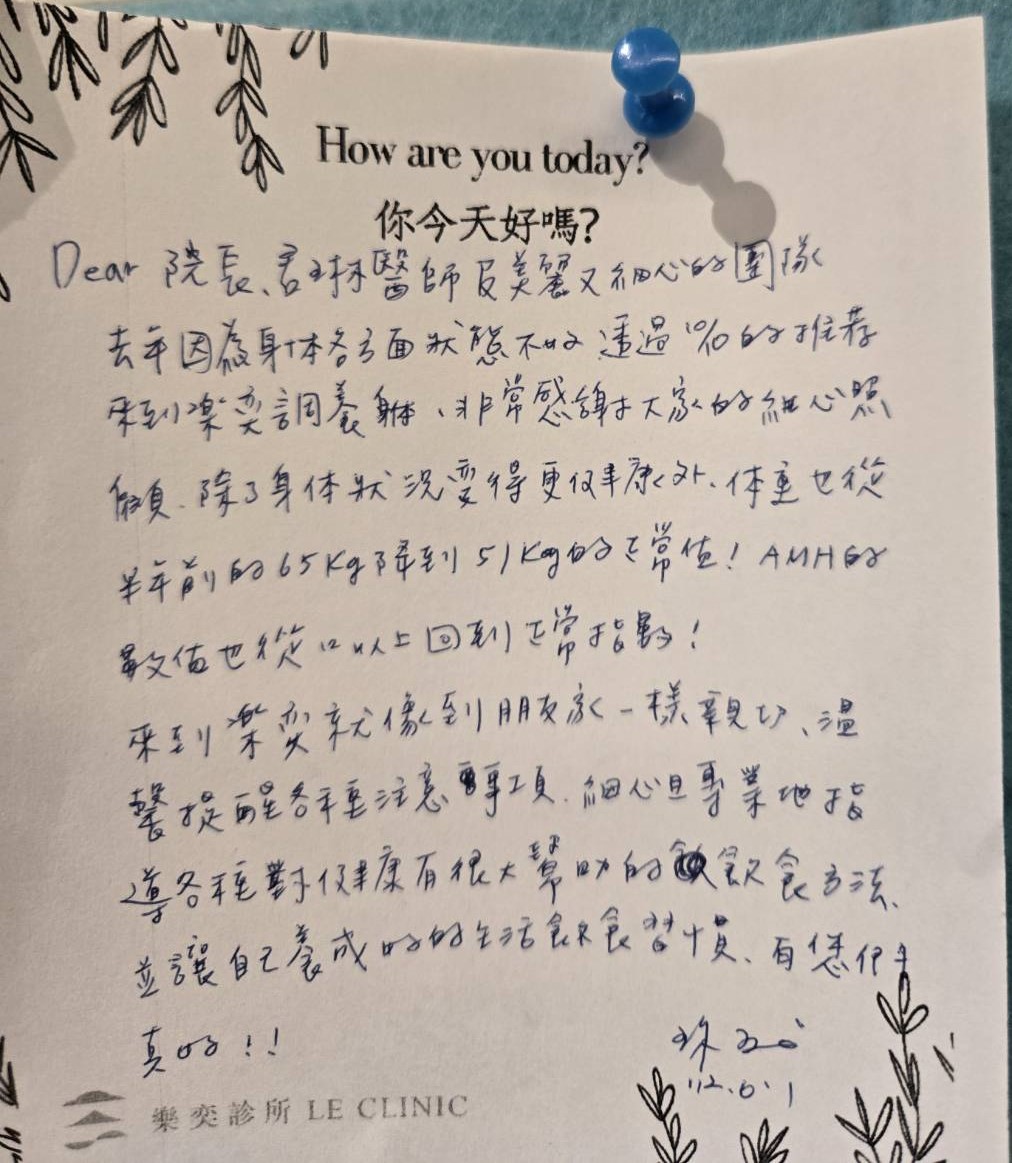 How are you today?
你今天好嗎?
Dear 院長、君琳醫師及美麗又細心的團隊
去年因為身体各方面狀態不好 透過 的推荐
來到樂奕調養身体、非常感謝大家的細心照
顧. 除了身体狀況變得更健康外、体重也從
半年前的65Kg降到51Kg的正常值! AMH的
數值也從12以上回到正常指數!
來到樂奕就像到朋友家一樣親切、溫
馨提醒各種注意事項. 細心且專業地指
導各種對健康有很大幫助的飲食方法、
並讓自己養成好的生活飲食習慣、有您們
真好!!
112.6.1
樂奕診所 LE CLINIC